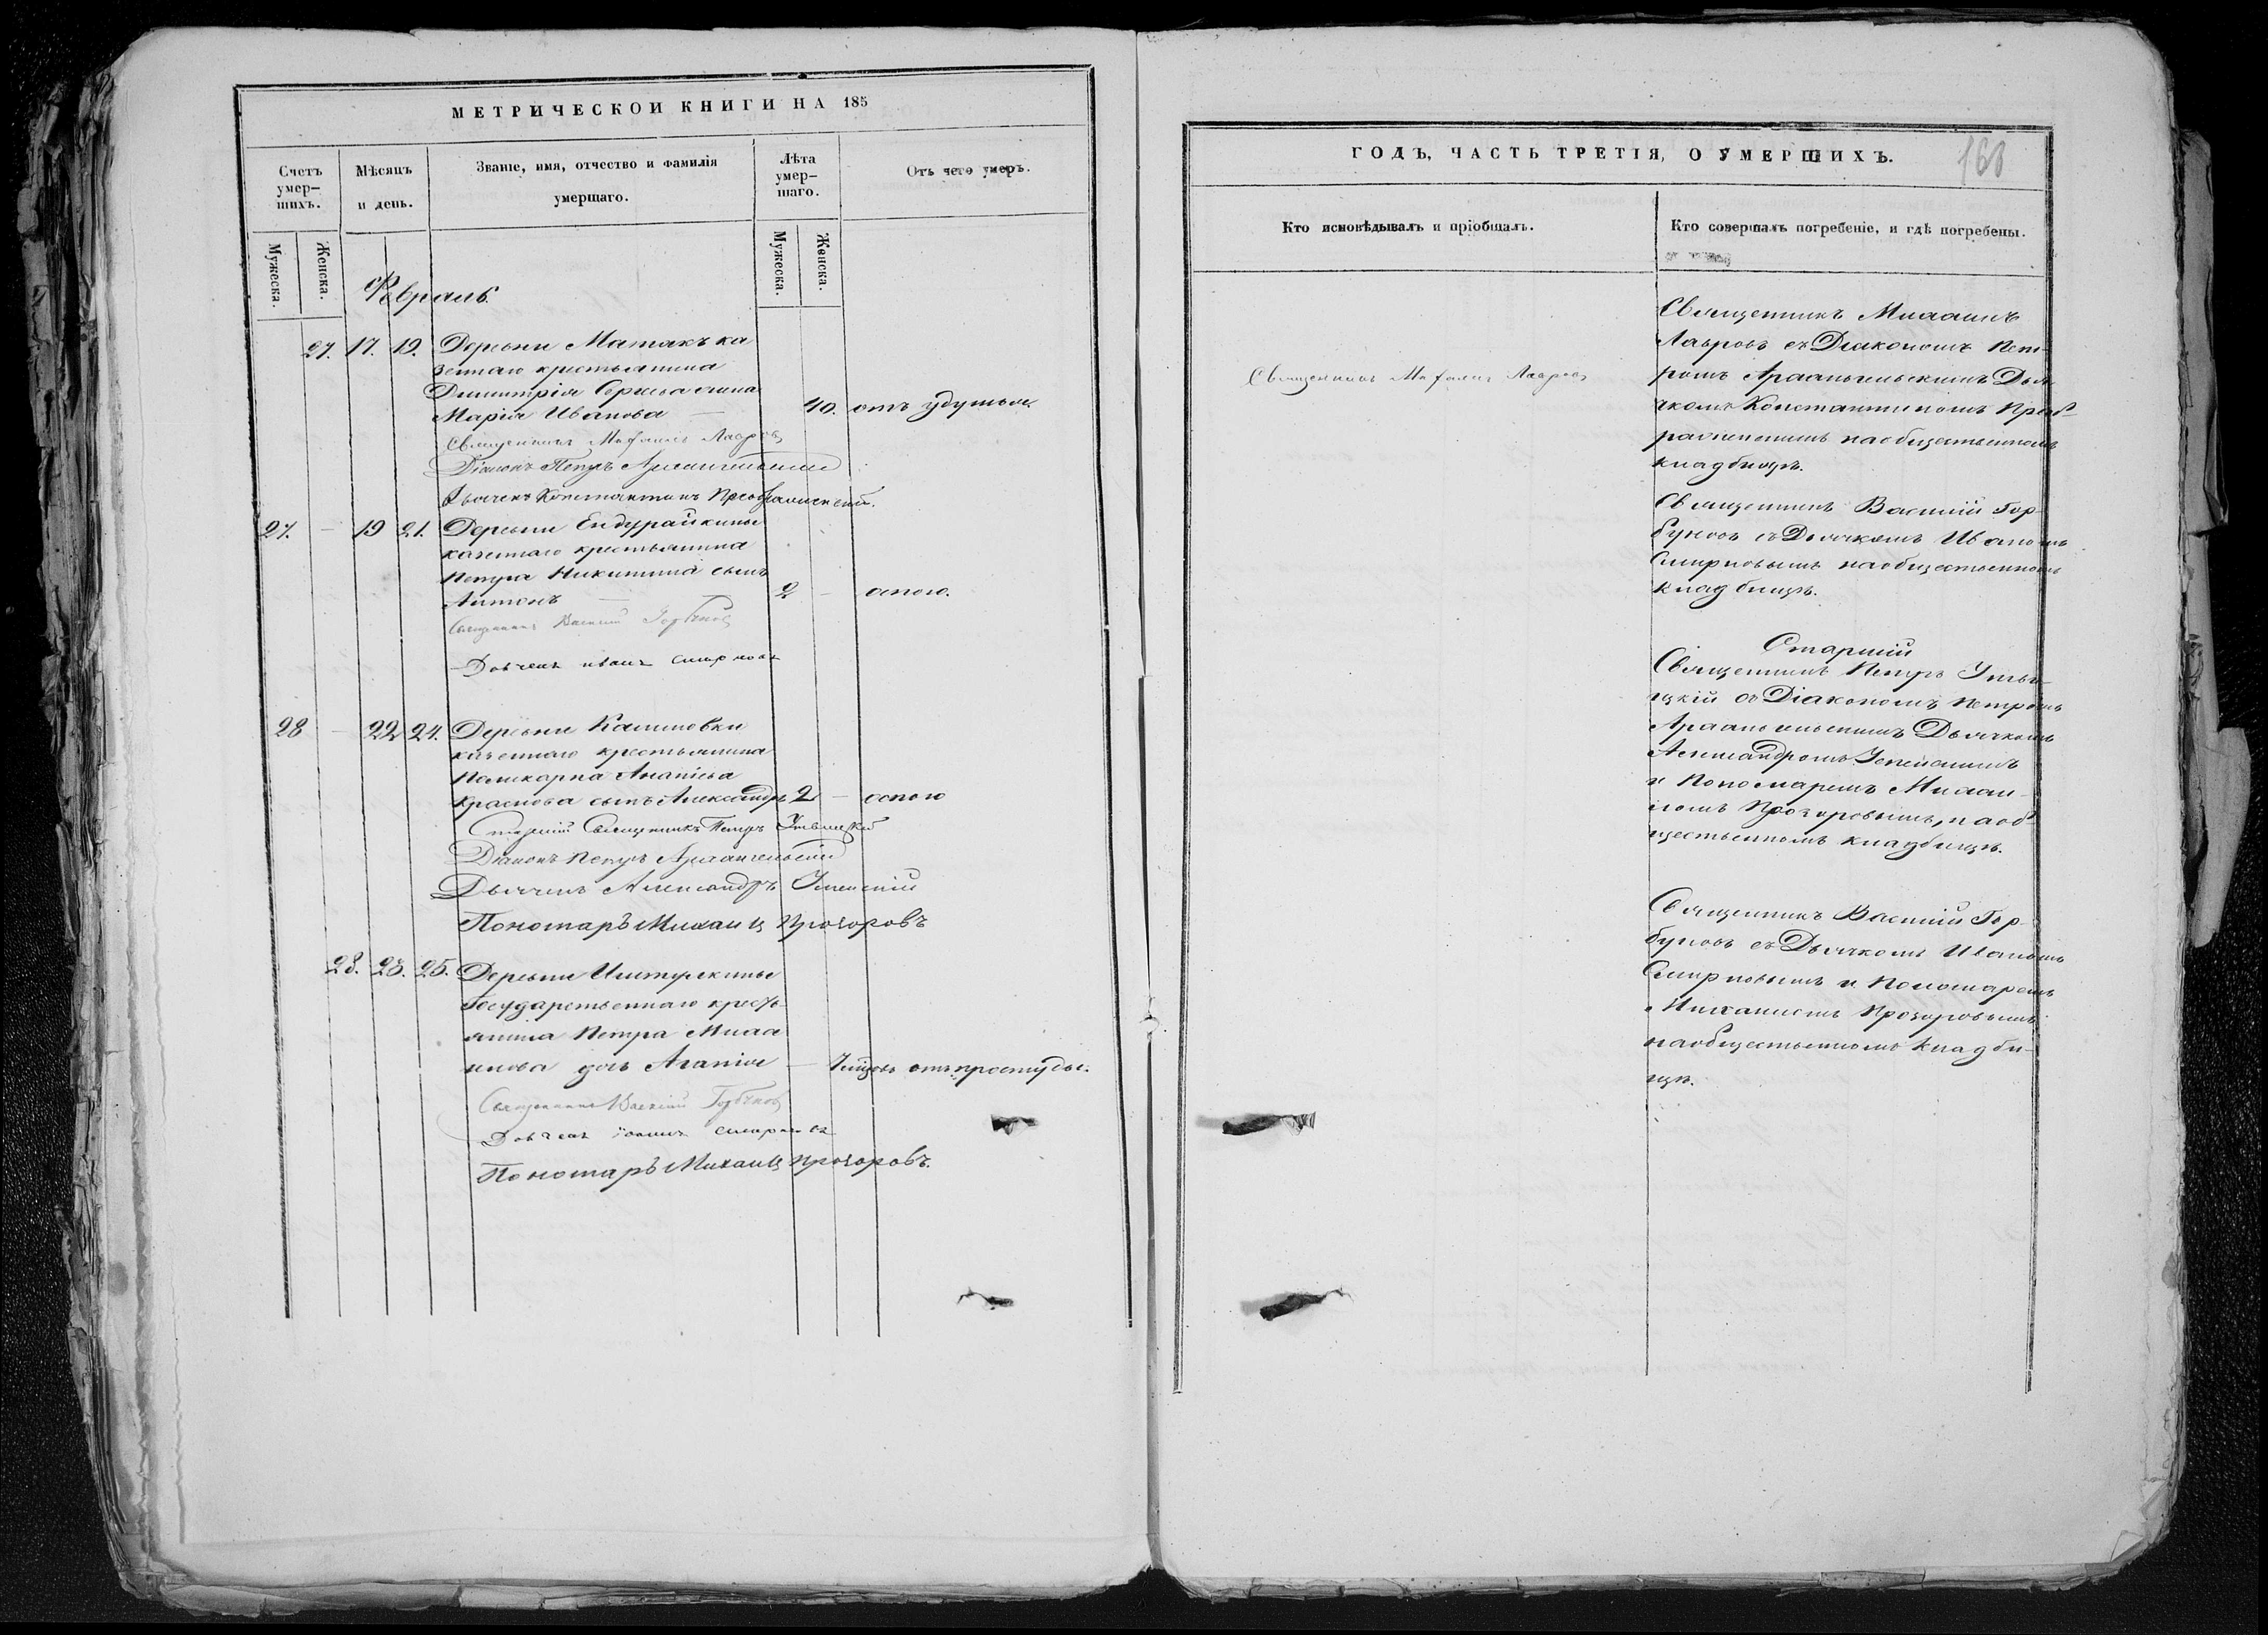 МЕТРИЧЕСКОЙ КНИГИ НА 185
Счетъ умер-шихъ.
Мѣсяцъ и день.
Званіе, имя, отчество и фамилія умершаго.
Лѣта умер-шаго.
Отъ чего умеръ.
Мужеска.
Женска.
Мужеска.
Женска.
Февраль.
27. 17. 19. Деревни Матакъ ка
зеннаго крестьянина
Димитрія Сергѣева жена
Марія Иванова — 40. отъ удушья.
Священникъ Михаилъ Лавровъ
Діаконъ Петръ Архангельскій
Дьячекъ Константинъ Преображенскій.
27. — 19 21. Деревни Ендурайкины
казеннаго крестьянина
Петра Никитина сынъ
Антонъ — 2 — оспою.
Священникъ Василій Горбуновъ
Дьячекъ Иванъ Смирновъ
28 — 22 24. Деревни Калиновки
казеннаго крестьянина
Поликарпа Ананіева
Краснова сынъ Александръ 2 — оспою
Старшій Священникъ Петръ
Діаконъ Петръ Архангельскій
Дьячекъ Александръ Успенскій
Пономарь Михаилъ Прозоровъ
28. 23. 25. Деревни
Государственнаго кресть-
янина Петра Михаи
лова дочь Агапія — отъ простуды.
Священникъ Василій Горбуновъ
Дьячекъ Іоаннъ Смирновъ
Пономарь Михаилъ Прозоровъ.
ГОДЪ, ЧАСТЬ ТРЕТІЯ, О УМЕРШИХЪ.
168
Кто исповѣдывалъ и пріобщалъ.
Кто совершалъ погребеніе, и гдѣ погребены.
Священникъ Михаилъ Лавровъ
Священникъ Михаилъ
Лавровъ съ Діакономъ Пет-
ромъ Архангельскимъ Дья-
чкомъ Константиномъ Преоб-
раженскимъ на общественномъ
кладбищѣ.
Священникъ Василій Гор-
буновъ съ Дьячкомъ Иваномъ
Смирновымъ на общественномъ
кладбищѣ.
Старшій
Священникъ Петръ
цкій съ Діакономъ Петромъ
Архангельскимъ Дьячкомъ
Александромъ Успенскимъ
и Пономаремъ Михаи-
ломъ Прозоровымъ, на об-
щественномъ кладбищѣ.
Священникъ Василій Гор-
буновъ съ Дьячкомъ Иваномъ
Смирновымъ и Пономаремъ
Михаиломъ Прозоровымъ
на общественномъ кладби-
щѣ.